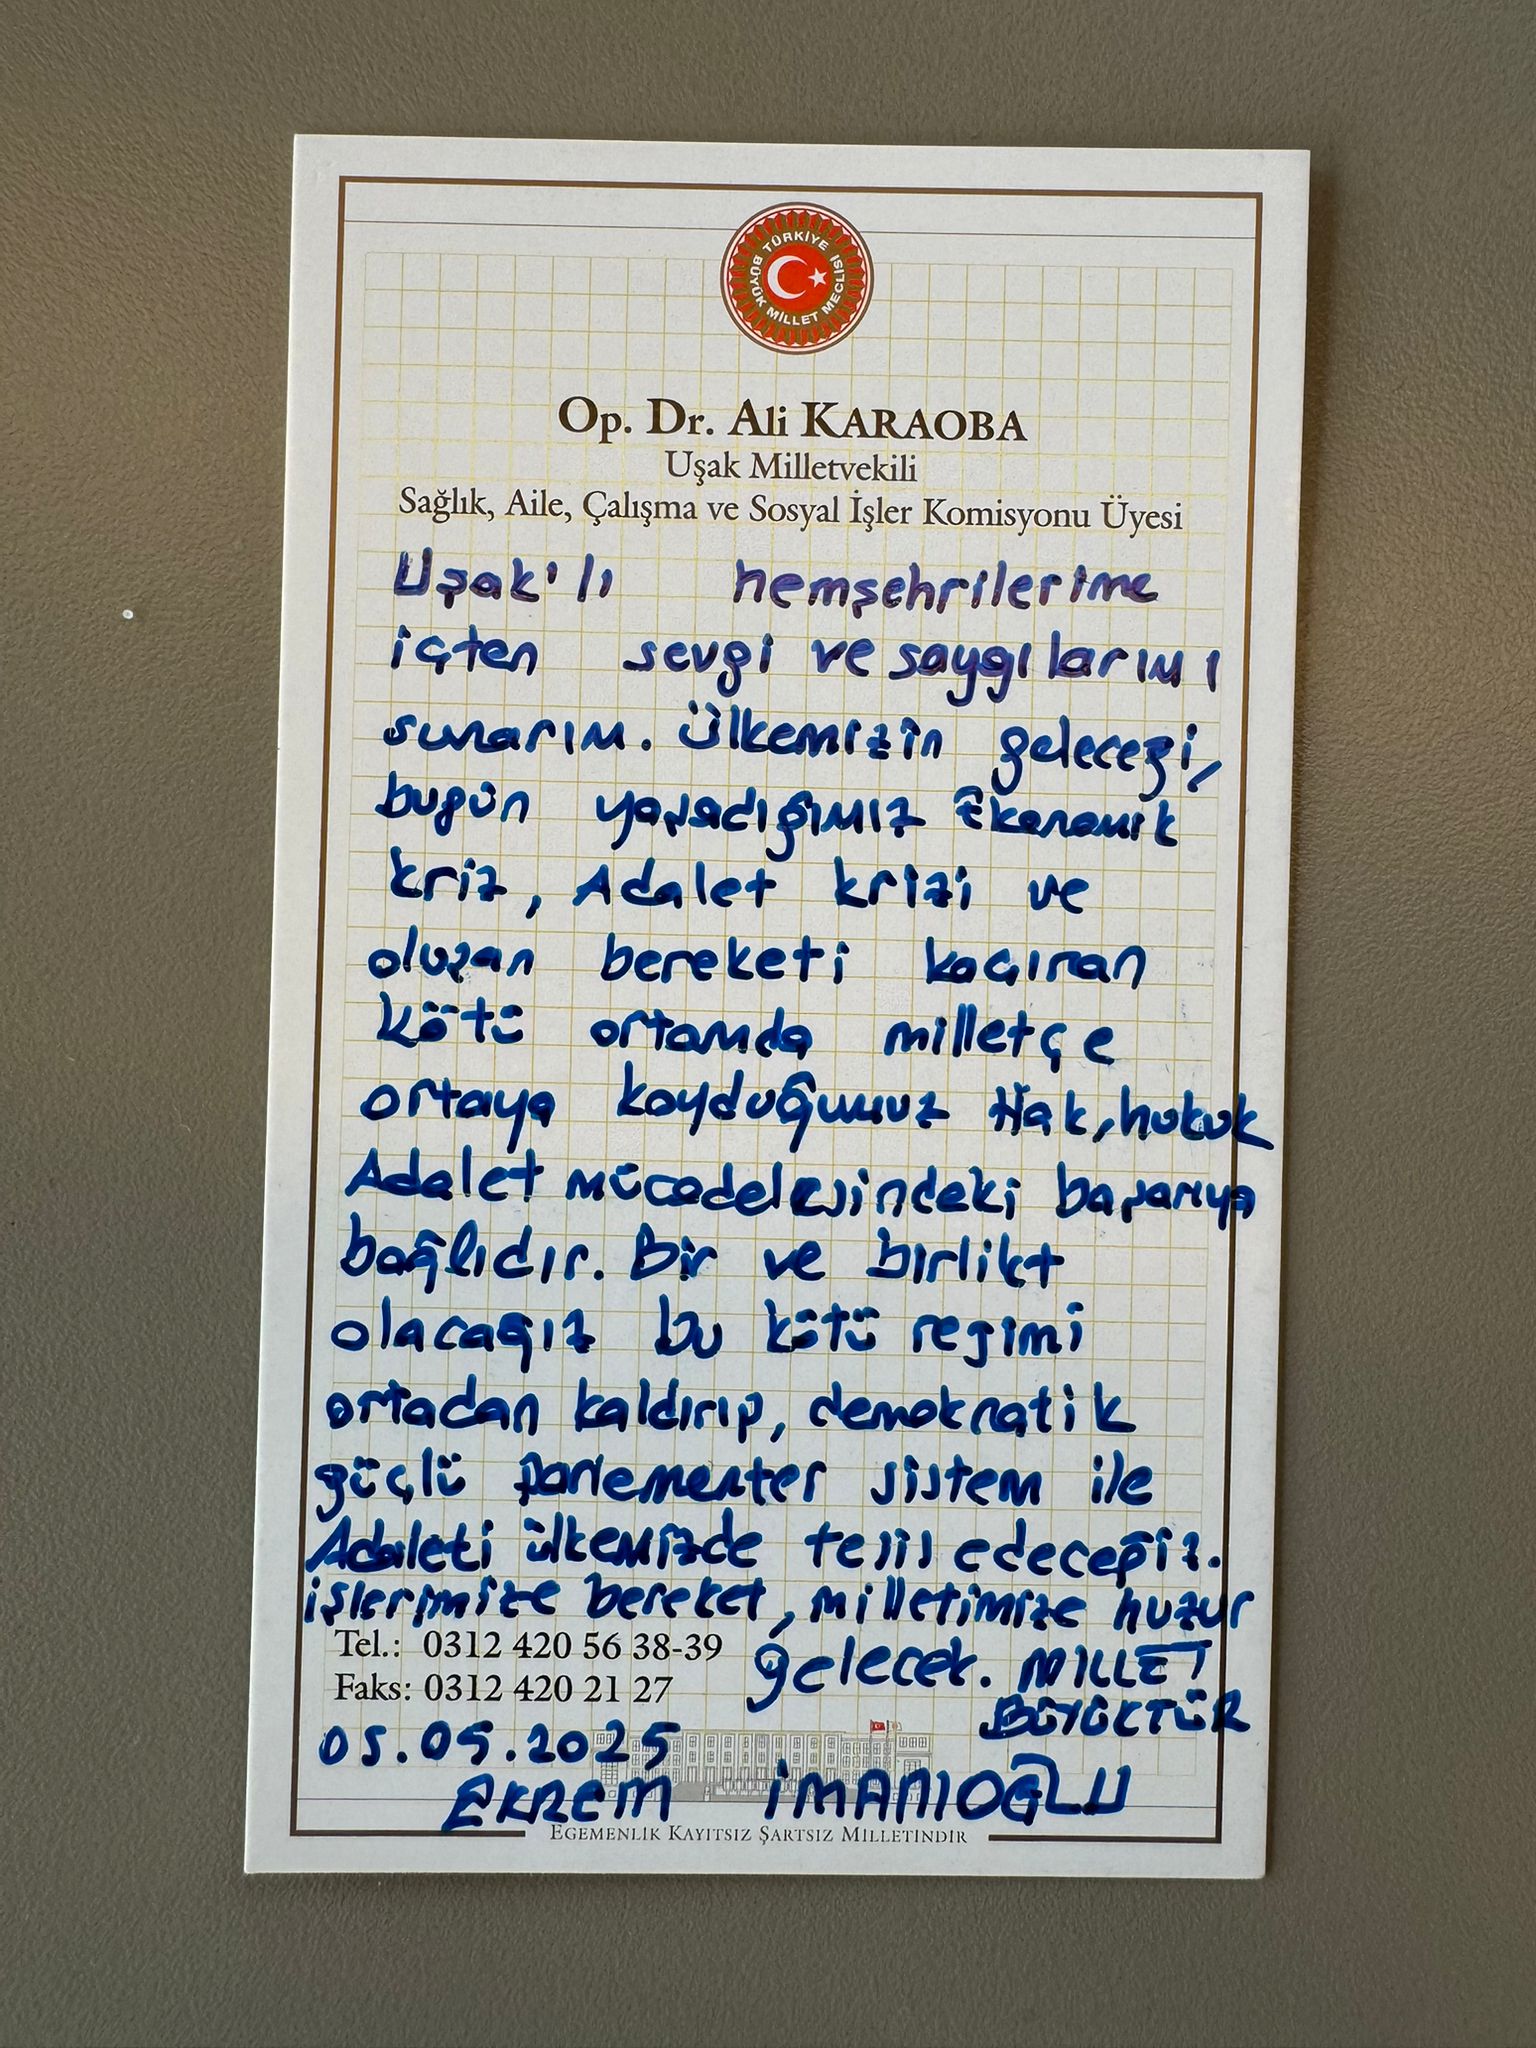 TÜRKİYE BÜYÜK MİLLET MECLİSİ
Op. Dr. Ali KARAOBA
Uşak Milletvekili
Sağlık, Aile, Çalışma ve Sosyal İşler Komisyonu Üyesi
Uşak'lı hemşehrilerime
içten sevgi ve saygılarımı
sunarım. Ülkemizin geleceği,
bugün yaşadığımız Ekonomik
kriz, Adalet krizi ve
oluşan bereketi kaçıran
kötü ortamda milletçe
ortaya koyduğumuz Hak, hukuk
Adalet mücadelesindeki başarıya
bağlıdır. Bir ve birlikt
olacağız bu kötü rejimi
ortadan kaldırıp, demokratik
güçlü parlementer sistem ile
Adaleti ülkemizde tesis edeceğiz.
işlerimize bereket, milletimize huzur
Tel.: 0312 420 56 38-39 gelecek. MİLLET
Faks: 0312 420 21 27 BÜYÜKTÜR
05.05.2025
EKREM İMAMOĞLU
EGEMENLİK KAYITSIZ ŞARTSIZ MİLLETİNDİR